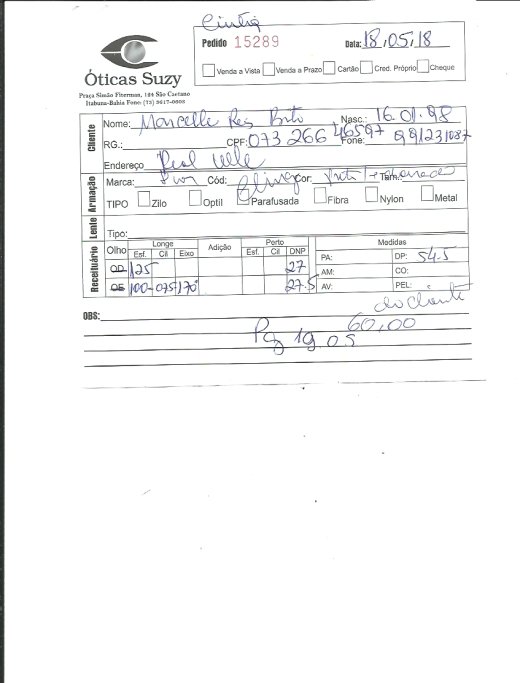 Pedido 15289 Data: 18,05,18
Venda a Vista Venda a Prazo Cartão Cred. Próprio Cheque
Óticas Suzy
Praça Simão Fiterman, 164 São Caetano
Itabuna-Bahia Fone: (73) 3617-0603
Cliente
Nome: Marcelle Reis Brito Nasc.: 16.01.98
RG.: CPF: 073 266 46597 Fone: 991231087
Endereço
Armação
Marca: Cód: Cor: Tam.:
TIPO Zilo Optil Parafusada Fibra Nylon Metal
Lente
Tipo:
Receituário
Olho Longe Adição Perto Medidas
Esf. Cil Eixo Esf. Cil DNP PA: DP: 54.5
OD 125 27 AM: CO:
OE 100-075-170° 27.5 AV: PEL:
do cliente
OBS: 60,00
Pg 19 05